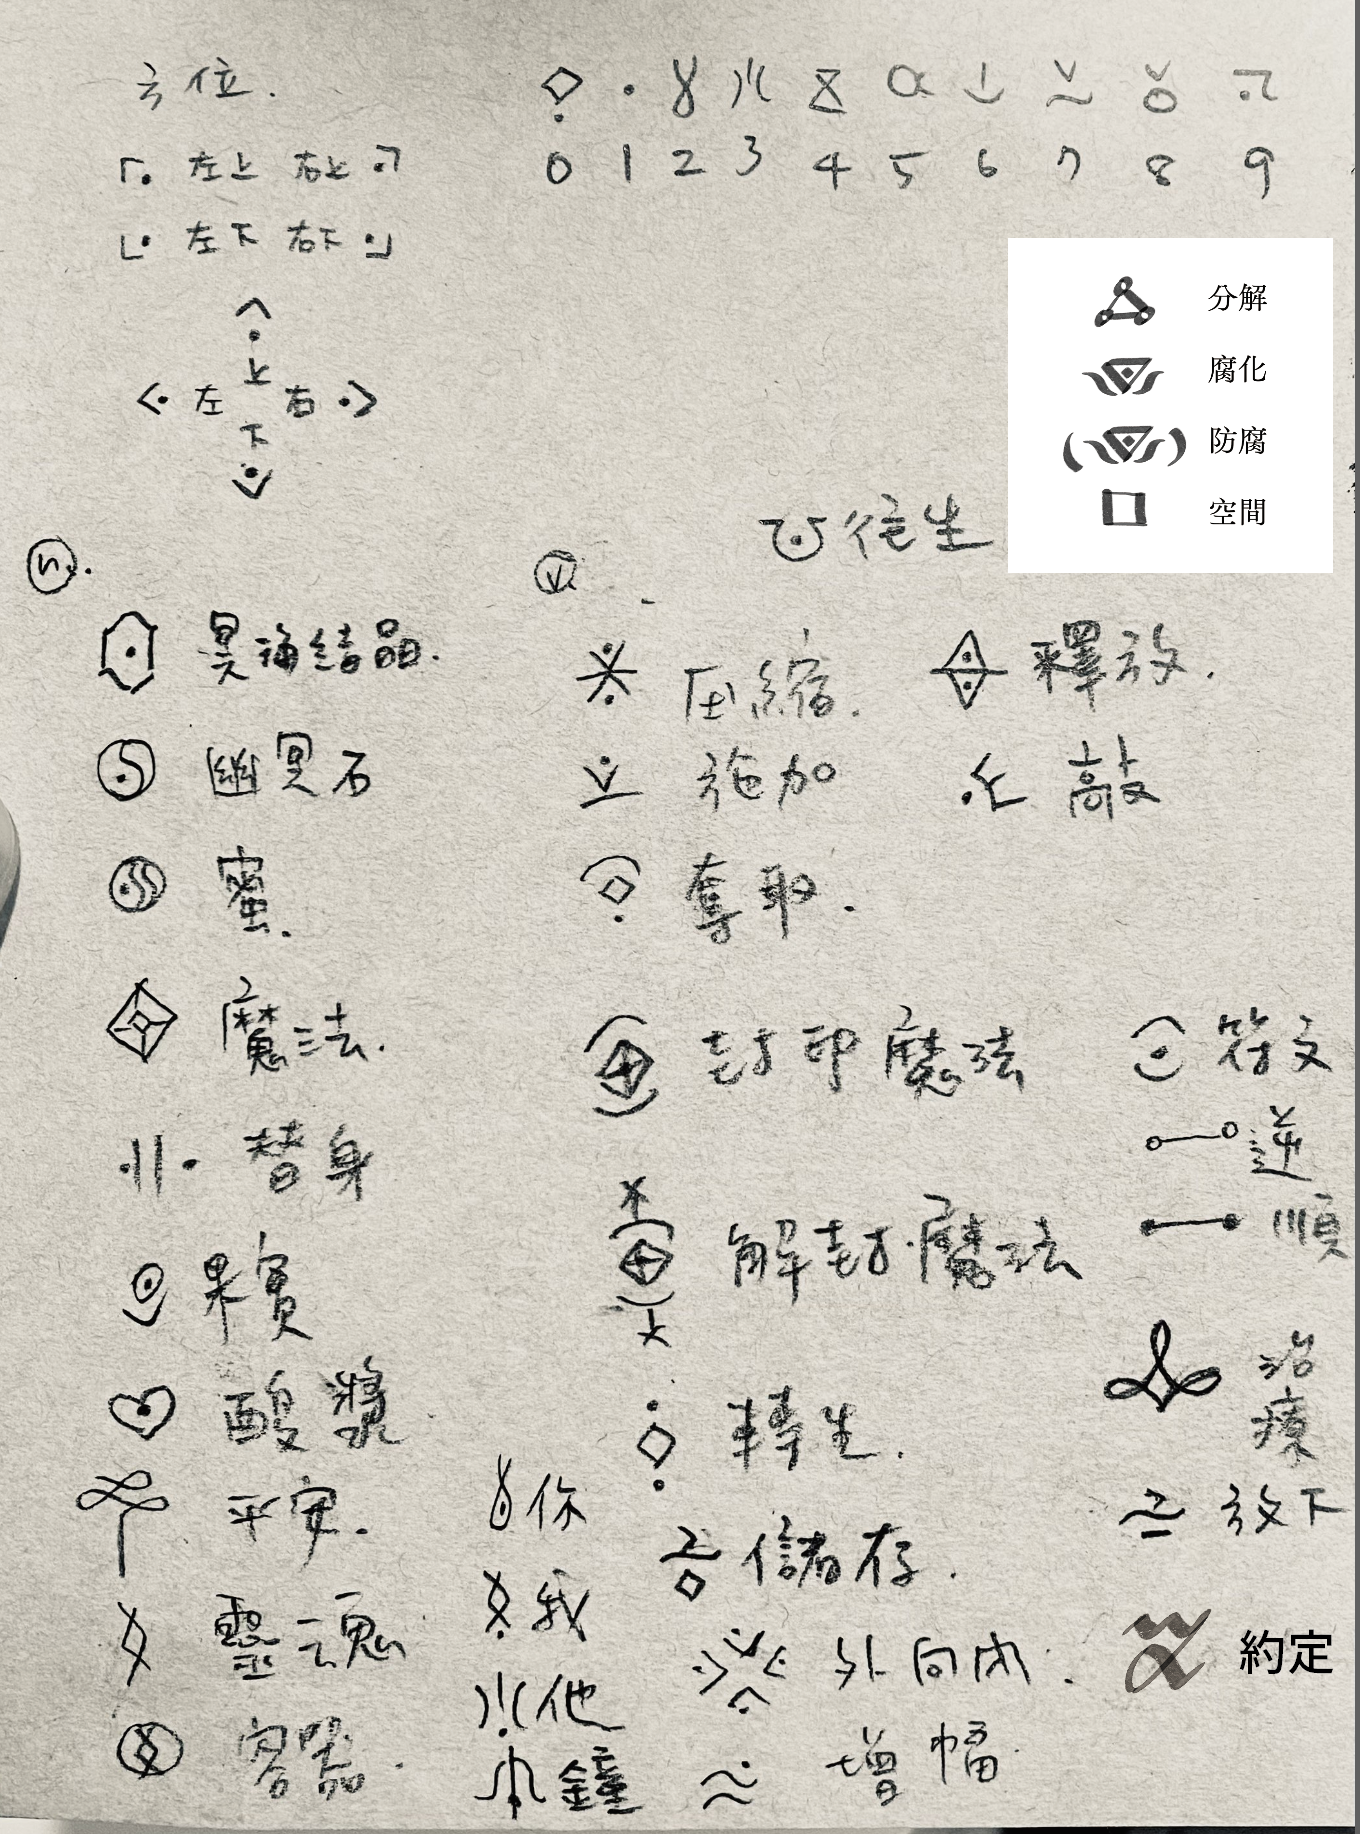 方位.
0 1 2 3 4 5 6 7 8 9
左上 右上
左下 右下
上
左 右
下
分解
腐化
防腐
空間
往生
n.
v.
冥海結晶.
壓縮.
釋放.
幽冥石
施加
敲
蜜.
奪取.
魔法.
封印魔法
符文
替身
逆
解封魔法
順
果實
治療
酸漿
轉生.
平安.
你
放下
儲存.
我
靈魂
外向內.
約定
他
容器.
鐘
增幅